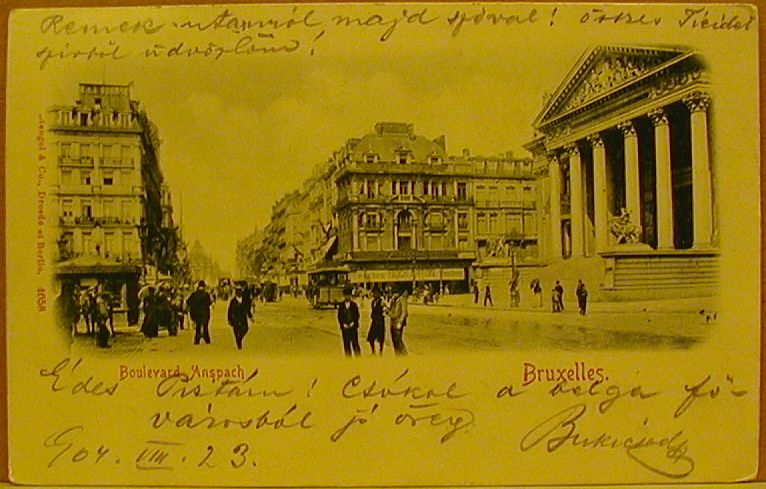 Remek utamról majd szóval! összes Ticidet
szivből üdvözlöm!
Stengel & Co., Dresde et Berlin. 4058
Boulevard Anspach
Bruxelles.
Édes Pistám! Csókol a belga fő-
városból jó öreg
904. VIII. 23.